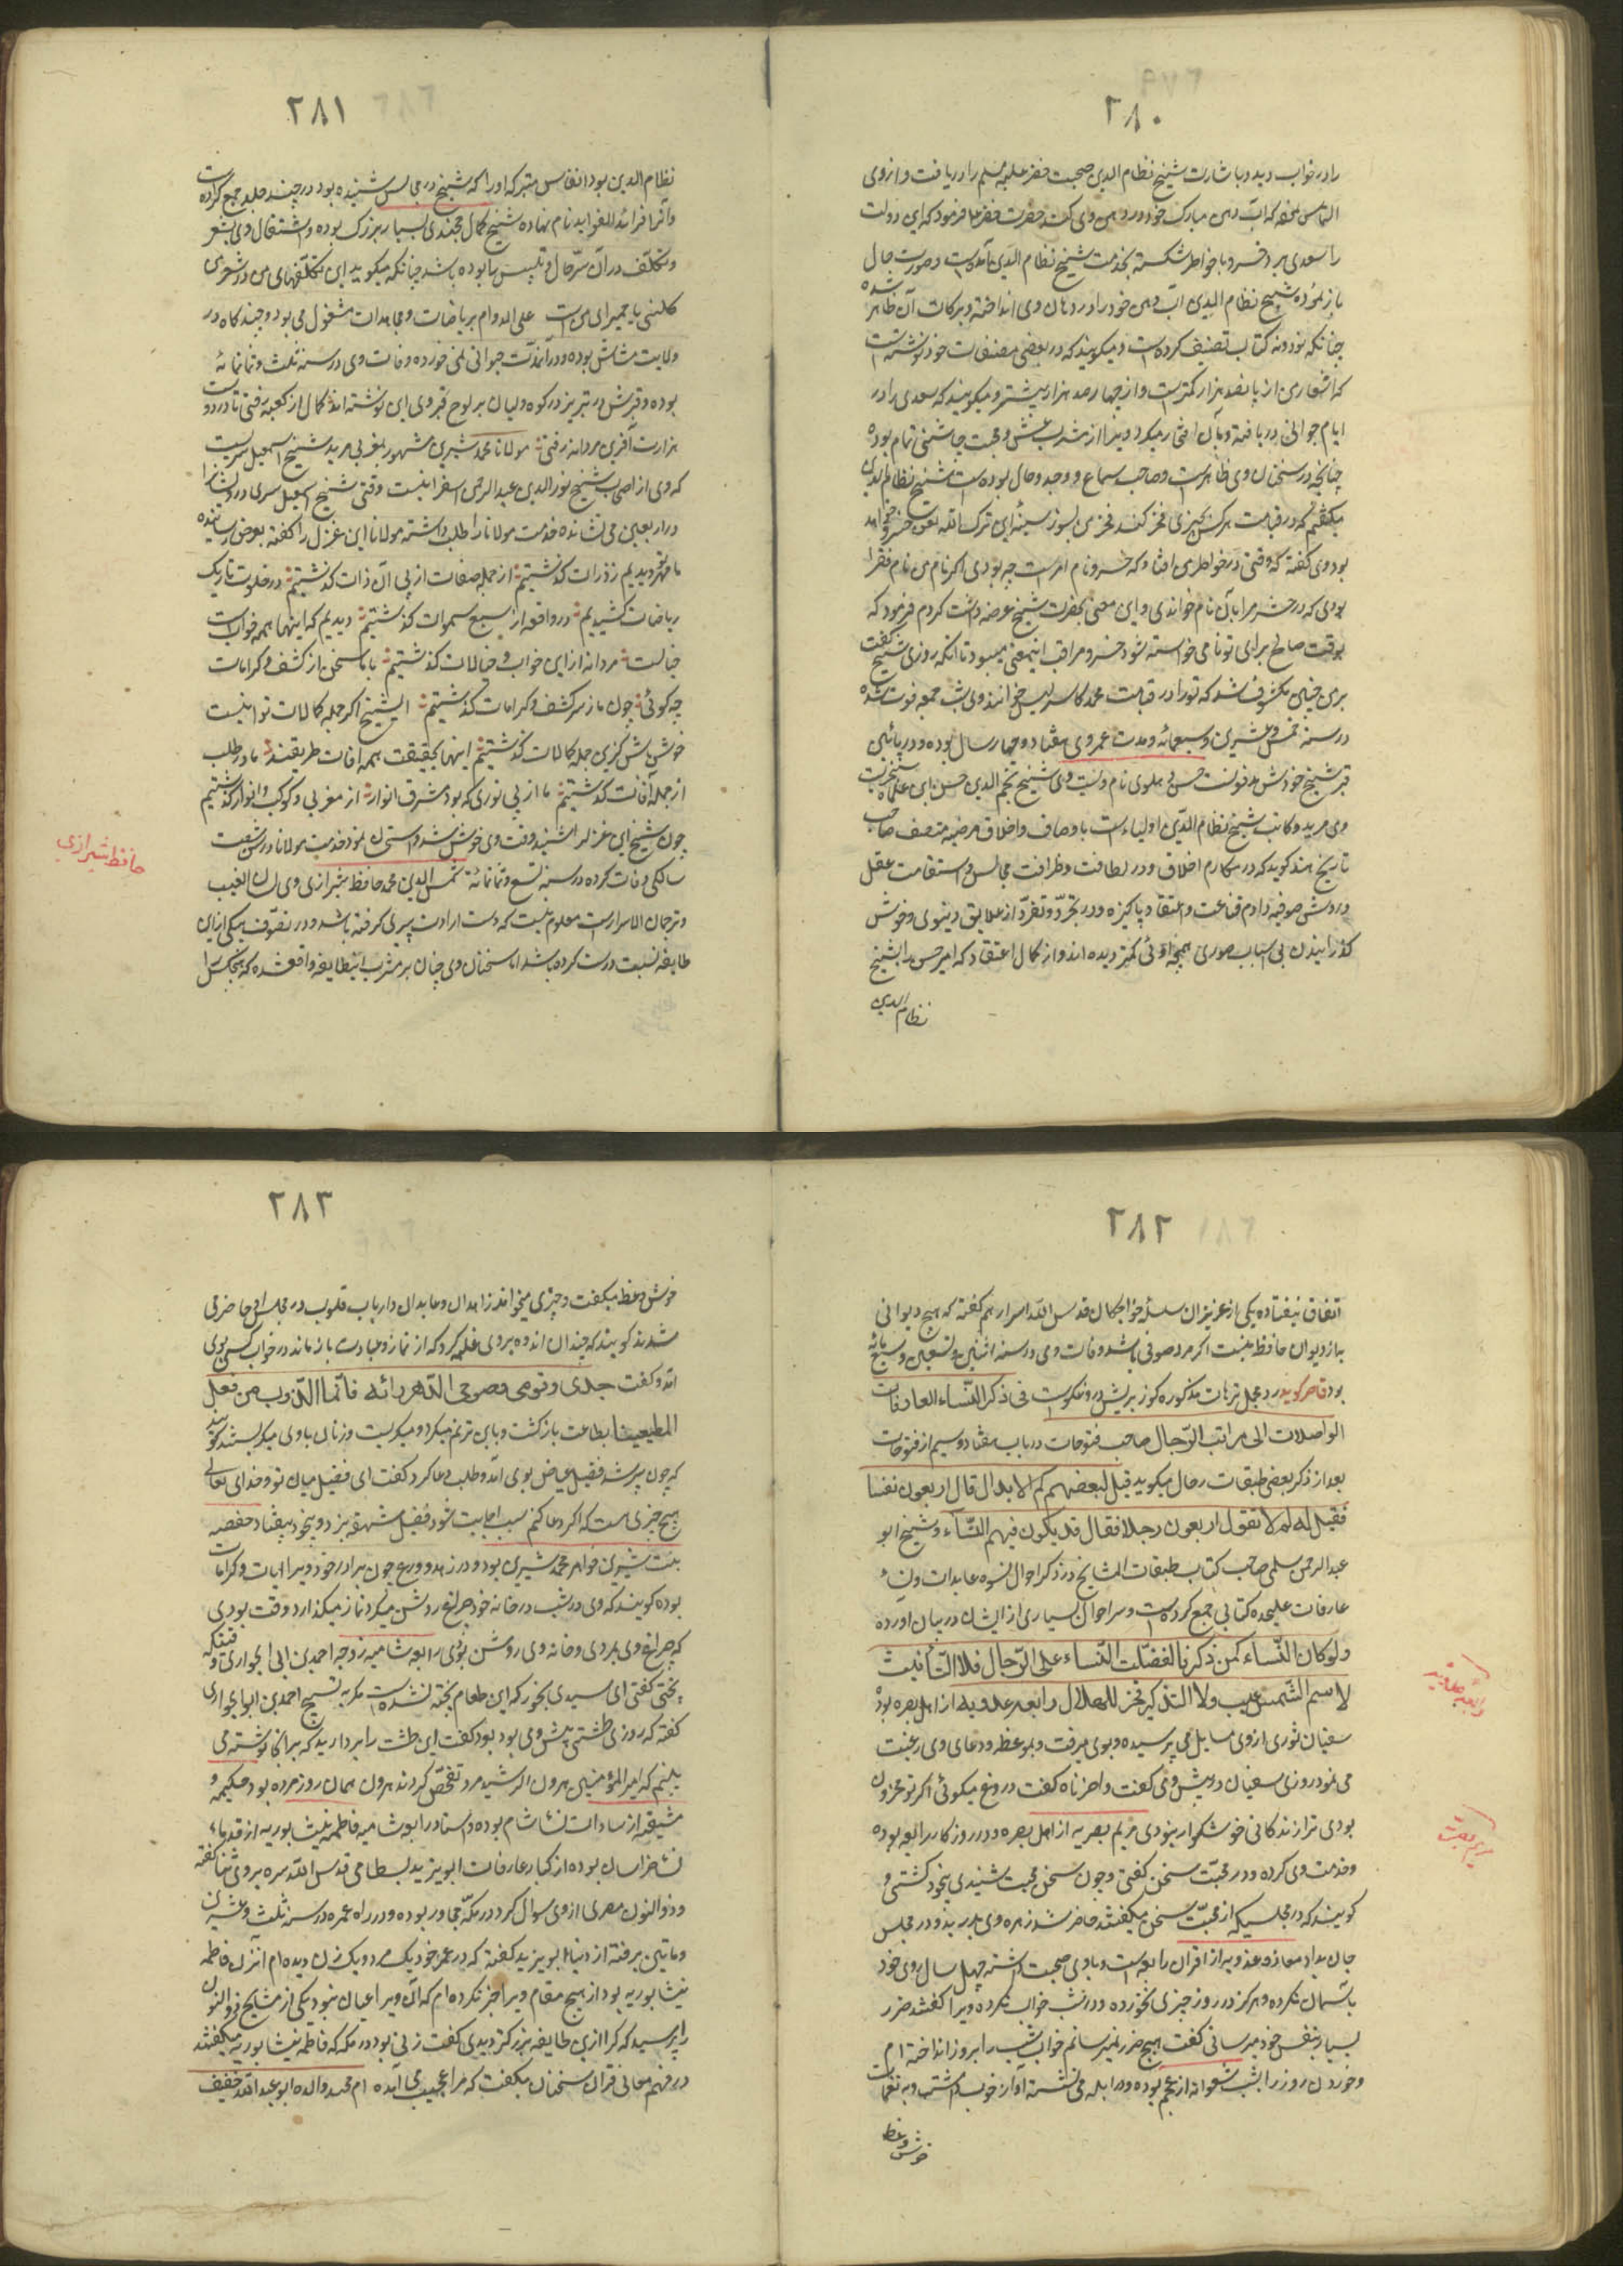 ٢٨٠
را در خواب دید و باشارت شیخ نظام الدین صحبت خضر علیه السلم را دریافت و از وی
التماس نمود که آب دهن مبارک خود در دهن وی کند حضرت خضر علیه فرمود که این دولت
را سعدی برد خسرو با خاطر شکسته بخدمت شیخ نظام الدین آمده است و صورت حال
باز نموده شیخ نظام الدین آب دهن خود را در دهان وی انداخته و برکات آن ظاهر شده
چنانکه نود و نه کتاب تصنیف کرده است و میکویند که در بعضی مصنفات خود نوشته است
که اشعار من از پانصد هزار کمترست و از چهار صد هزار بیشتر و میکویند که سعدی را در
ایام جوانی دریافته و بآن افتخار میکرد و ویرا از مشرب عشق و محبت چاشنی تمام بوده
چنانچه در سخنان وی ظاهرست و صاحب سماع و وجد و حال بوده است شیخ نظام الدین
میکفتم که در قیامت هر کس بچیزی فخر کند فخر من بسوز سینهٔ این ترک الله یعنی خسرو خواهد
بود وی کفته که وقتی در خاطر من افتاد که خسرو نام امراست چه بودی اکر نام من نام فقرا
بودی که در حشر مرا بآن نام خواندی و این معنی بحضرت شیخ عرضه داشت کردم فرمود که
بوقت صالح برای تو نامی خواسته شود خسرو مراقب این معنی میبود تا آنکه روزی شیخ کفت
بر من چنین مکشوف شد که تو را در قیامت محمد کاسه لیس خوانند وی شب جمعه فوت شده
در سنه خمس و عشرین و سبعمائه و مدت عمر وی هفتاد و چهار سال بوده و در پائین
قبر شیخ خودش مدفونست حسن دهلوی نام و نسبت وی شیخ نجم الدین حسن ابن علاء سنجریست
وی مرید و کاتب شیخ نظام الدین اولیاء است باوصاف و اخلاق مرضیه متصف صاحب
تاریخ هند کوید که در مکارم اخلاق و در لطافت و ظرافت مجالس و استقامت عقل
و روش صوفیه و لزوم قناعت و اعتقاد پاکیزه و در تجرد و تفرد از علایق دنیوی و خوش
کذرانیدن بی اسباب صوری همچو اوئی کمتر دیده اند و از کمال اعتقاد که امیر حسن را بشیخ
نظام الدین
٢٨١
نظام الدین بود انفاس متبرکه او را که شیخ در مجالس شنیده بود در چند جلد جمع کرده است
و آنرا فرائد الفواید نام نهاده شیخ کمال خجندی بسیار بزرک بوده و اشتغال وی بشعر
و تکلف در آن ستر حال و تلبیس را بوده باشد چنانکه میکوید این تکلفهای من در شعر من
کلمینی یا حمیرای منست علی الدوام بریاضات و مجاهدات مشغول می بود و چند کاه در
ولایت شاش بوده و در آنمدت حیوانی نمی خورده وفات وی در سنه ثلث و ثمانمائه
بوده و قبرش در تبریز در کوه ولیان بر لوح قبر وی این نوشته اند کمال از کعبه رفتی تا در دوست
هزارت آفرین مردانه رفتی مولانا محمد شیرین مشهور بمغربی مرید شیخ اسمعیل سیسیست
که وی از اصحاب شیخ نور الدین عبد الرحمن اسفراینیست وقتی شیخ اسمعیل سیسی درویشانرا
در اربعین می نشانده خدمت مولانا را طلب داشته مولانا این غزل را کفته بعرض رسانیده
ما مهر تو دیدیم ز ذرات کذشتیم از جمله صفات از پی آن ذات کذشتیم در خلوت تاریک
ریاضات کشیدیم در واقعه از سبع سموات کذشتیم دیدیم که اینها همه خوابست
خیالست مردانه از این خواب و خیالات کذشتیم با ما سخن از کشف و کرامات
چه کوئی چون ما ز سر کشف و کرامات کذشتیم ای شیخ اکر جمله کمالات تو اینست
خوش باش کزین جمله کمالات کذشتیم اینها بحقیقت همه آفات طریقند ما در طلب
از جمله آفات کذشتیم ما از پی نوری که بود مشرق انوار از مغربی و کوکب و انوار کذشتیم
چون شیخ این غزل را شنید وقت وی خوش شد و استحسان نمود خدمت مولانا در سن شصت
سالکی وفات کرده در سنه تسع و ثمانمائة شمس الدین محمد حافظ شیرازی وی لسان الغیب
و ترجمان الاسرارست معلوم نیست که دست ارادت پیری کرفته باشد و در تصوف بیکی از این
طایفه نسبت درست کرده باشد اما سخنان وی چنان بر مشرب اینطایفه واقع شده که هیچکس را
حافظ شیرازی
٢٨٢
اتفاق نیفتاده یکی از عزیزان سلسلهٔ خواجکان قدس الله اسرارهم کفته که هیچ دیوانی
به از دیوان حافظ نیست اکر مرد صوفی باشد وفات وی در سنه اثنین و تسعین و سبع مائه
بود قاصر کوید رد مجل ترهات مذکوره کوز بریش درونکوست فی ذکر النساء العارفات
الواصلات الی مراتب الرجال صاحب فتوحات در باب هفتاد و سیم از فتوحات
بعد از ذکر بعضی طبقات رجال میکوید قیل لبعضهم کم الابدال قال اربعون نفسا
فقیل له لم لا تقول اربعون رجلا فقال قد یکون فیهم النساء و شیخ ابو
عبد الرحمن سلمی صاحب کتاب طبقات المشایخ در ذکر احوال نسوه عابدات و نساء
عارفات علیحده کتابی جمع کرده است و سر احوال بسیاری از ایشان در بیان اورده
ولو کان النساء کمن ذکرنا لفضلت النساء علی الرجال فلا التانیث
لاسم الشمس عیب ولا التذکیر فخر للهلال رابعه عدویه از اهل بصره بوده
سفیان ثوری از وی مسایل می پرسیده و بوی میرفت و بموعظه و دعای وی رغبت
می نمود روزی سفیان در پیش وی کفت واحزناه کفت دروغ میکوئی اکر تو محزون
بودی ترا زندکانی خوشکوار نبودی مریم بصریه از اهل بصره و در روزکار رابعه بوده
و خدمت وی کرده و در محبت سخن کفتی و چون سخن محبت شنیدی بیخود کشتی و
کویند که در مجلسیکه از محبت سخن میکفتند حاضر شد زهره وی بدرید و در مجلس
جان بداد معاذه عدویه از اقران رابعه است و با وی صحبت داشته چهل سال روی خود
بآسمان نکرده و هرکز در روز چیزی نخورده و در شب خواب نکرده ویرا کفتند ضرر
بسیار بنفس خود میرسانی کفت هیچ ضرر نمیرسانم خواب شب را بروز انداخته ام
و خوردن روز را بشب شعوانه از عجم بوده و در ابله می نشسته آواز خوب داشت و به نغمات
خوش وعظ
رابعه عدویه
مریم بصریه
٢٨٣
خوش وعظ میکفت و چیزی میخواند زاهدان و عابدان و ارباب قلوب در مجلس او حاضر می
شدند کویند که چندان اندوه بر وی غلبه کرد که از نماز و عبادت باز ماند در خواب کسی بوی
آمد و کفت
المطیعینا بطاعت بازکشت و باین ترنم میکرد و میکریست و زنان با وی میکریستند کویند
که چون پیر شد فضیل عیاض بوی آمد و طلب دعا کرد کفت ای فضیل میان تو و خدای تعالی
هیچ چیزی هست که اکر دعا کنم سبب اجابت شود فضیل شهقه بزد و بیخود بیفتاد حفصه
بنت شیرین خواهر محمد شیرین بود و در زهد و ورع چون برادر خود ویرا آیات و کرامات
بوده کویند که وی در شب در خانه خود چراغ روشن میکرد نماز میکذارد وقت بودی
که چراغ وی بمردی و خانه وی روشن بوُدی رابعه شامیه زوجه احمد بن ابی الحواری وقتیکه
پختی کفتی ای سیدی بخور که این طعام پخته نشده است مکر به تسبیح احمد بن ابو الحواری
کفته که روزی طشتی پیش وی بود بود کفت این طشت را بردارید که بر آنجا نوشته می
بینم که امیر المؤمنین هرون الرشید مرد تفحص کردند هرون همان روز مرده بود حکیمه و
مشیقه از سادات نساء شام بوده و استاد رابعه شامیه فاطمه نیشابوریه از قدماء
نساء خراسان بوده از کبار عارفات ابو یزید بسطامی قدس الله سره بر وی ثنا کفته
و ذوالنون مصری از وی سوال کرد در مکه مجاور بوده و در راه عمره در سنه ثلث و عشرین
و مائتین برفته از دنیا ابو یزید کفته که در عمر خود یک مرد و یک زن دیده ام آنزن فاطمه
نیشابوریه بود از هیچ مقام ویرا خبر نکرده ام که آن ویرا عیان نبود یکی از مشایخ ذو النون
را پرسید که کرا ازین طایفه بزرکتر دیدی کفت زنی بود در مکه که فاطمه نیشابوریه میکفتند
در فهم معانی قران سخنان میکفت که مرا عجیب می آیده ام محمد والده ابو عبد الله خفیف